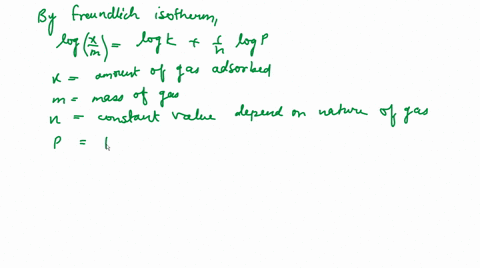 By freundlich isotherm,
log(x/m) = log k + 1/n log P
x = amount of gas adsorbed
m = mass of gas
n = constant value depend on nature of gas
P =